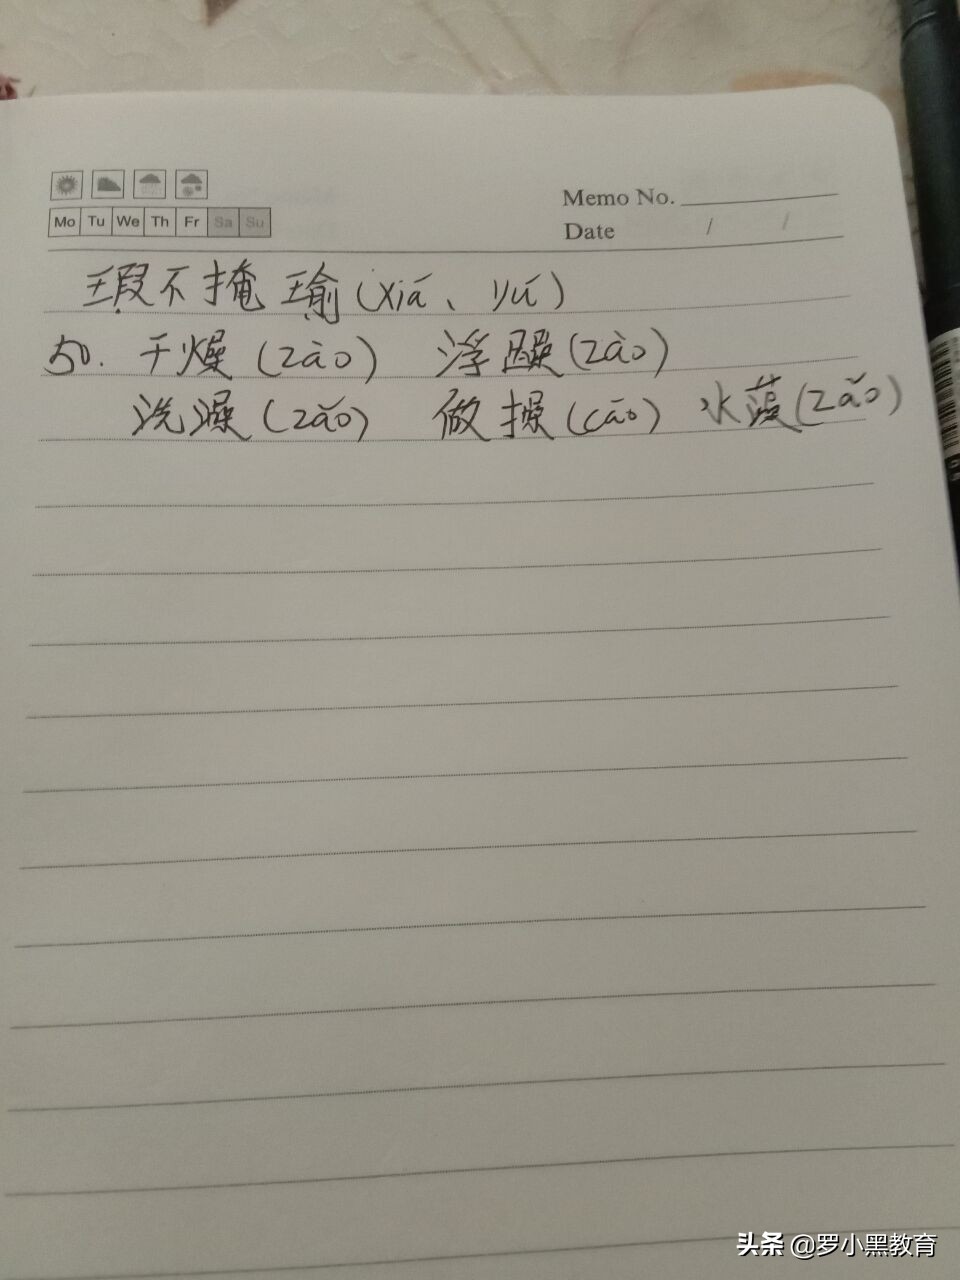 Mo Tu We Th Fr Sa Su
Memo No.
Date / /
瑕不掩瑜(xiá、yú)
50. 干燥(zào) 浮躁(zào)
洗澡(zǎo) 做操(cāo) 水藻(zǎo)
头条 @罗小黑教育